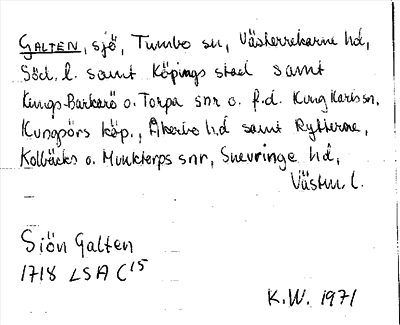 GALTEN, sjö, Tumbo sn, Västerrekarne hd,
Söd. l. samt Köpings stad samt
Kungs-Barkarö o. Torpa snr o. f.d. Kung Karls sn,
Kungsörs köp., Åkerbo hd samt Rytterne,
Kolbäcks o. Munktorps snr, Snevringe hd,
Västm. l.
Sjön Galten
1718 LSA C15
K.W. 1971